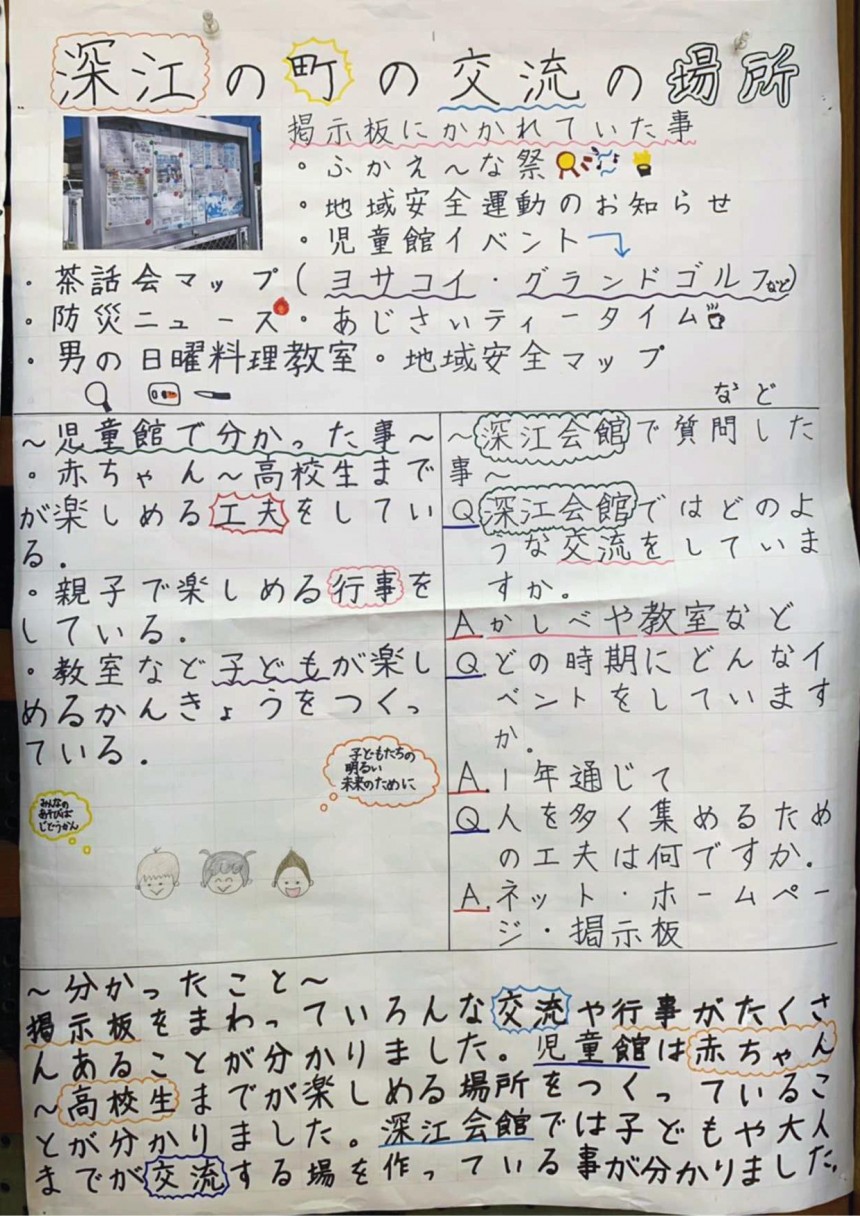 深江の町の交流の場所
掲示板にかかれていた事
・ふかえ〜な祭
・地域安全運動のお知らせ
・児童館イベント
・茶話会マップ(ヨサコイ・グランドゴルフなど)
・防災ニュース・あじさいティータイム
・男の日曜料理教室・地域安全マップ
など
〜児童館で分かった事〜
・赤ちゃん〜高校生まで
が楽しめる工夫をしてい
る.
・親子で楽しめる行事を
している.
・教室など子どもが楽し
めるかんきょうをつくっ
ている.
子どもたちの
明るい
未来のために
みんなの
あそびば
じどうかん
〜深江会館で質問した
事〜
Q深江会館ではどのよ
うな交流をしていま
すか。
A.かしべや教室など
Q.どの時期にどんなイ
ベントをしています
か。
A.1年通じて
Q.人を多く集めるため
の工夫は何ですか.
A.ネット・ホームペー
ジ・掲示板
〜分かったこと〜
掲示板をまわっていろんな交流や行事がたくさ
んあることが分かりました。児童館は赤ちゃん
〜高校生までが楽しめる場所をつくっているこ
とが分かりました。深江会館では子どもや大人
までが交流する場を作っている事が分かりました。